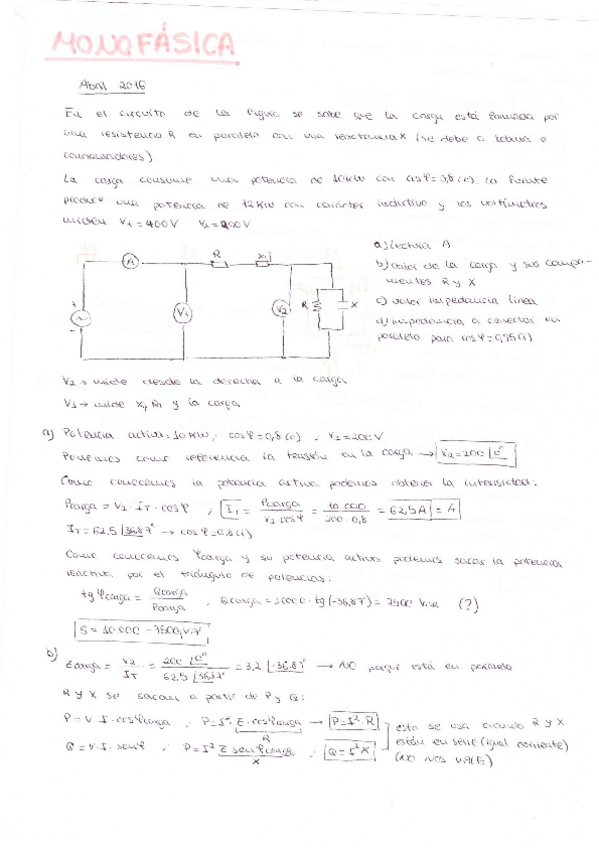 MONOFÁSICA
Abril 2016
En el circuito de la figura se sabe que la carga está formada por
una resistencia R en paralelo con una reactancia X (se debe a bobina o
condensadores)
La carga consume una potencia de 10 kW con cos φ = 0,8 (c). La fuente
produce una potencia de 12 kW con carácter inductivo y los voltímetros
miden V1 = 400 V V2 = 200 V
a) lectura A
b) valor de la carga y sus componentes R y X
c) valor impedancia línea
d) impedancia a conectar en
paralelo para cos φ = 0,95 (i)
A
R
V1
V2
R
X
V2 → mide desde la derecha a la carga
V1 → mide y la carga
a) Potencia activa: 10 kW; cos φ = 0,8 (c) ; V1 = 200 V
Ponemos como referencia la tensión en la carga → V2 = 200 ∠0°
Como conocemos la potencia activa podemos obtener la intensidad:
Pcarga = V2 · IT · cos φ ; IT = Pcarga / V2 · cos φ = 10 000 / 200 · 0,8 = 62,5 A = A
IT = 62,5 ∠36,87° → cos φ = 0,8 (i)
Como conocemos φcarga y su potencia activa podemos sacar la potencia
reactiva por el triángulo de potencias:
tg φcarga = Qcarga / Pcarga ; Qcarga = 10000 · tg (-36,87°) = 7500 VAr (?)
S = 10.000 - 7500j VA
b) Zcarga = V2 / IT = 200 ∠0° / 62,5 ∠36,87° = 3,2 ∠-36,87° → NO porque está en paralelo
R y X se sacan a partir de P y Q:
P = V · I · cos φcarga ; P = I² · Z · cos φcarga → P = I² · R
R
esto se usa cuando R y X
Q = V · I · sen φ ; P = I² Z sen φcarga ; Q = I² X
X
están en serie (igual corriente)
(NO NOS VALE)